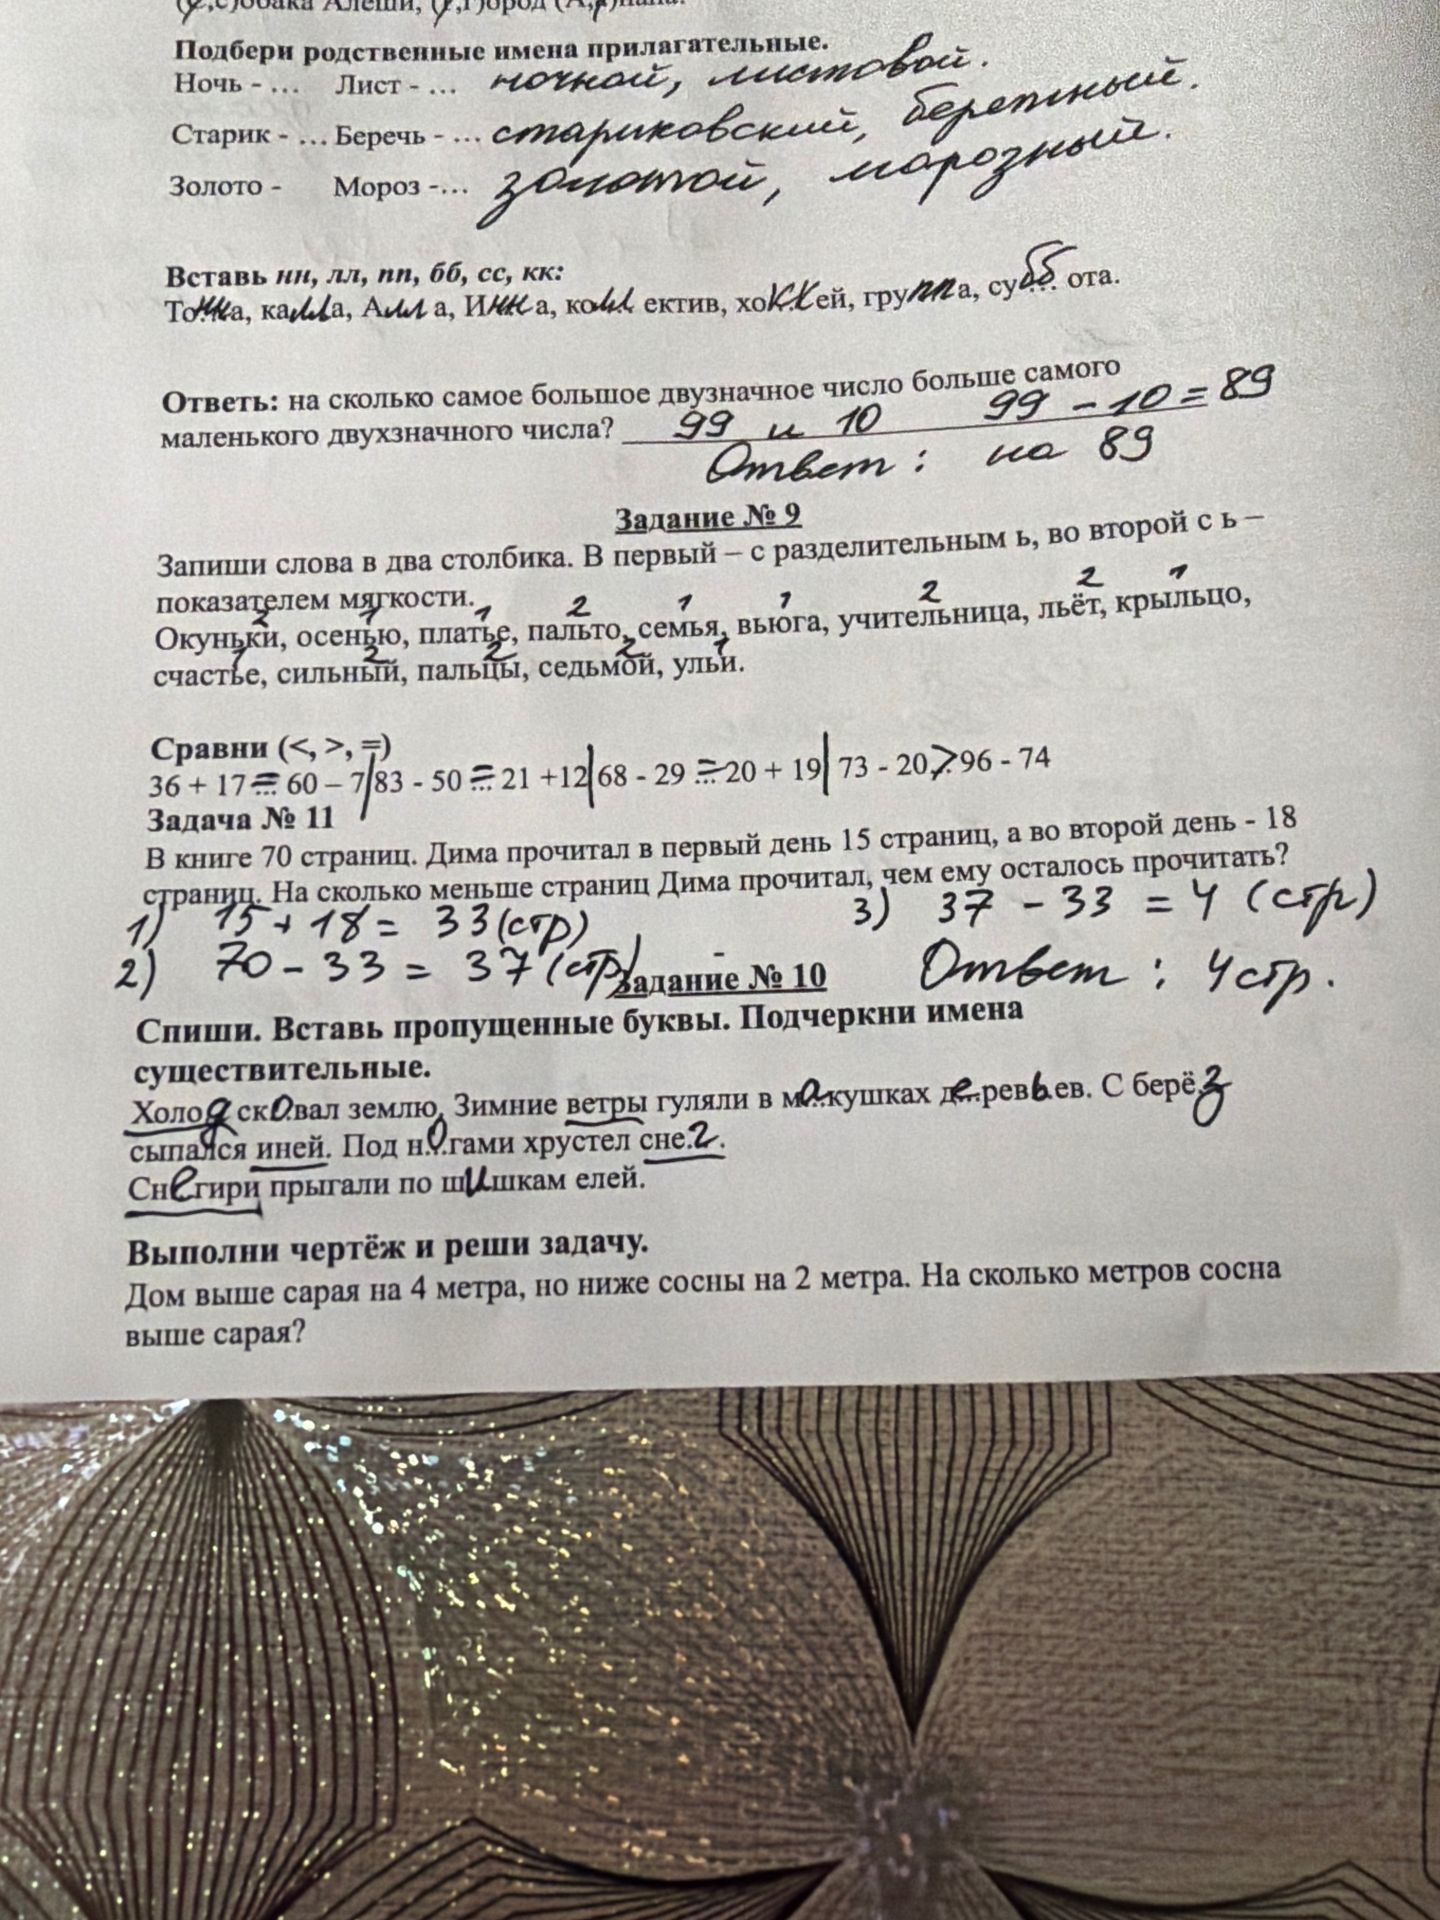 обака Алеши,
Подбери родственные имена прилагательные.
Ночь - … Лист - … ночной, листовой.
Старик - … Беречь - … стариковский, бережный.
Золото - Мороз -… золотой, морозный.
Вставь нн, лл, пп, бб, сс, кк:
Тонна, калла, Алла, Инна, коллектив, хоккей, группа, суббота.
Ответь: на сколько самое большое двузначное число больше самого
маленького двухзначного числа? 99 и 10 99 - 10 = 89
Ответ: на 89
Задание № 9
Запиши слова в два столбика. В первый – с разделительным ь, во второй с ь –
показателем мягкости.
2 1 1 2 1 1 2 2 1
Окуньки, осенью, платье, пальто, семья, вьюга, учительница, льёт, крыльцо,
1 2 2 2 1
счастье, сильный, пальцы, седьмой, ульи.
Сравни (<, >, =)
36 + 17 = 60 – 7 | 83 - 50 = 21 +12 | 68 - 29 = 20 + 19 | 73 - 20 > 96 - 74
Задача № 11
В книге 70 страниц. Дима прочитал в первый день 15 страниц, а во второй день - 18
страниц. На сколько меньше страниц Дима прочитал, чем ему осталось прочитать?
1) 15 + 18 = 33 (стр) 3) 37 - 33 = 4 (стр)
2) 70 - 33 = 37 (стр) Ответ: 4 стр.
Задание № 10
Спиши. Вставь пропущенные буквы. Подчеркни имена
существительные.
Холод сковал землю. Зимние ветры гуляли в макушках деревьев. С берёз
сыпался иней. Под ногами хрустел снег.
Снегири прыгали по шишкам елей.
Выполни чертёж и реши задачу.
Дом выше сарая на 4 метра, но ниже сосны на 2 метра. На сколько метров сосна
выше сарая?